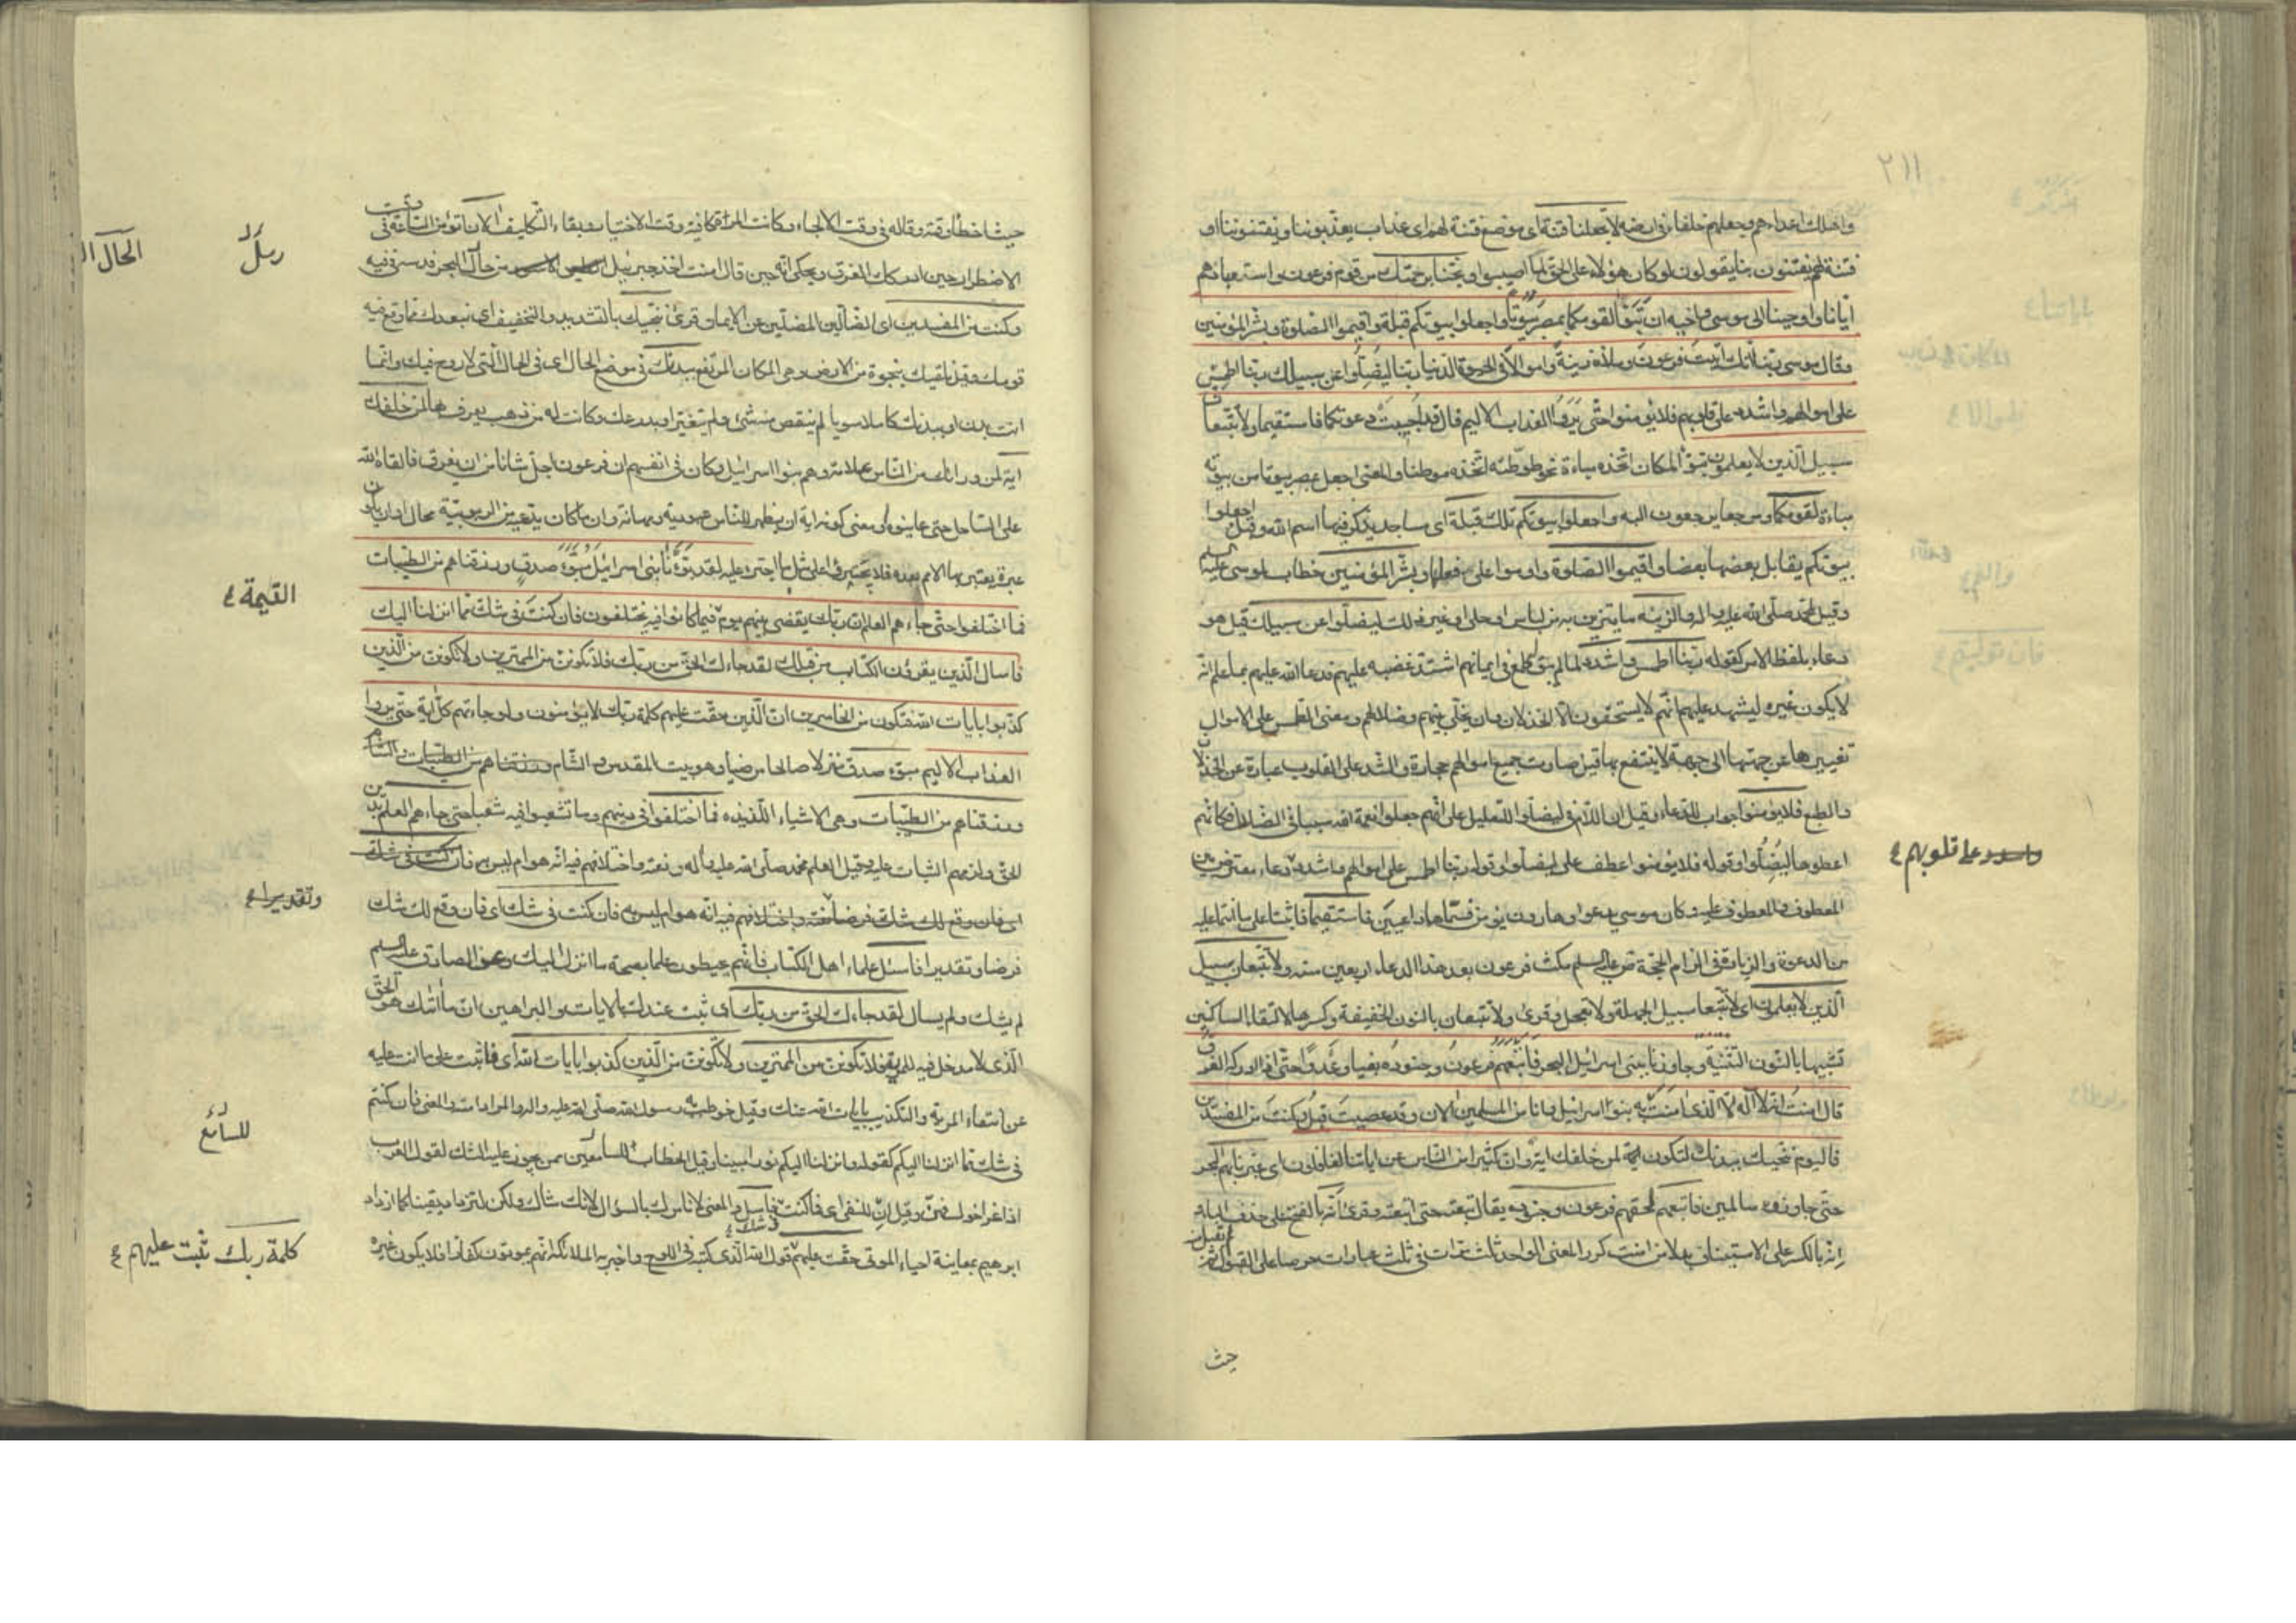 ٢١١
واهلك اعداءهم وجعلهم خلفا فى ارضه لا تجعلنا فتنة اى موضع فتنة لهم اى عذاب يعذبوننا ويفتنوننا او
فتنة لهم يفتنون بنا يقولون لو كان هؤلاء على الحق لما اصيبوا ونجنا برحمتك من قوم فرعون واستعبادهم
ايانا واوحينا الى موسى واخيه ان تبوّءا لقومكما بمصر بيوتا واجعلوا بيوتكم قبلة واقيموا الصلوة وبشر المؤمنين
وقال موسى ربنا انك اتيت فرعون وملاءه زينة واموالا فى الحيوة الدنيا ربنا ليضلوا عن سبيلك ربنا اطمس
على اموالهم واشدد على قلوبهم فلا يؤمنوا حتى يروا العذاب الاليم قال قد اجيبت دعوتكما فاستقيما ولا تتبعان
سبيل الذين لا يعلمون تبوّء المكان اتخذه مباءة نحو توطنه اتخذه موطنا والمعنى اجعل بمصر بيوتا من بيوته
مباءة لقومكما ومرجعا يرجعون اليه واجعلوا بيوتكم تلك قبلة اى مساجد يذكر فيها اسم الله وقيل اجعلوا
بيوتكم يقابل بعضها بعضا واقيموا الصلوة داوموا على فعلها وبشر المؤمنين خطاب لموسى عليه السلم
وقيل لمحمد صلى الله عليه واله والزينة ما يتزين به من لباس او حلى او غير ذلك ليضلوا عن سبيلك قيل هو
دعاء بلفظ الامر كقوله ربنا اطمس واشدد لما لم يبق طمع فى ايمانهم اشتد غضبه عليهم فدعا الله عليهم بما علم انه
لا يكون غيره ليشهد عليهم انهم لا يستحقون الا الخذلان وان يخلى بينهم وضلالهم ومعنى الطمس على الاموال
تغييرها عن جهتها الى جهة لا ينتفع بها قيل صارت جميع اموالهم حجارة والشد على القلوب عبارة عن الخذلان
والطبع فلا يؤمنوا جواب للدعاء وقيل ان اللام فى ليضلوا للتعليل على انهم جعلوا نعمة الله سببا فى الضلال فكانهم
اعطوها ليضلوا وقوله فلا يؤمنوا عطف على ليضلوا وقوله ربنا اطمس على اموالهم واشدد دعاء معترض بين
على قلوبهم
المعطوف والمعطوف عليه وكان موسى يدعو وهارون يؤمن فسماهما داعيين فاستقيما فاثبتا على ما انتما عليه
من الدعوة والزيادة فى الزام الحجة عليه السلم مكث فرعون بعد هذا الدعاء اربعين سنة ولا تتبعان سبيل
الذين لا يعلمون اى لا تتبعا سبيل الجهلة ولا تعجلا وقرئ ولا تتبعان بالنون الخفيفة وكسرها لالتقاء الساكنين
تشبيها بالنون التثنية وجاوزنا ببنى اسرائيل البحر فاتبعهم فرعون وجنوده بغيا وعدوا حتى اذا ادركه الغرق
قال امنت انه لا اله الا الذى امنت به بنوا اسرائيل وانا من المسلمين الان وقد عصيت قبل وكنت من المفسدين
فاليوم ننجيك ببدنك لتكون لمن خلفك اية وان كثيرا من الناس عن اياتنا لغافلون اى عبرنا بهم البحر
حتى جاوزوه سالمين فاتبعهم لحقهم فرعون وجنوده يقال تبعته حتى اتبعته وقرئ انه بالفتح على حذف الباء و
انه بالكسر على الاستيناف بدلا من امنت كرر المعنى الواحد ثلث مرات فى ثلث عبارات حرصا على القبول ثم لم تقبل منه
حيث
حيث اخطأ وقته وقاله فى وقت الالجاء وكانت المرة كافية وقت الاختيار وبقاء التكليف الان اتؤمن الساعة فى وقت
الاضطرار حين ادركك الغرق ويحكى انه حين قال امنت اخذ جبرئيل من حال البحر فدسه فى فيه
رمل
الحال ال
وكنت من المفسدين اى الضالين المضلين عن الايمان وقرئ ننجيك بالتشديد والتخفيف اى نبعدك مما وقع فيه
قومك وقيل نلقيك بنجوة من الارض وهى المكان المرتفع ببدنك فى موضع الحال اى فى الحال التى لا روح فيك وانما
انت بدن او ببدنك كاملا سويا لم ينقص منه شئ ولم يتغير او بدرعك وكانت له من ذهب يعرف بها لمن خلفك
اية لمن وراءك من الناس علامة وهم بنوا اسرائيل وكان فى انفسهم ان فرعون اجل شانا من ان يغرق فالقاه الله
على الساحل حتى عاينوه ومعنى كونه اية ان يظهر للناس عبوديته ومهانته وان ما كان يدعيه من الربوبية محال او ان يكون
عبرة يعتبر بها الامم بعده فلا يجترؤا على مثل ما اجترء عليه لقد بوّءنا بنى اسرائيل مبوّء صدق ورزقناهم من الطيبات
فما اختلفوا حتى جاءهم العلم ان ربك يقضى بينهم يوم فيما كانوا فيه يختلفون فان كنت فى شك مما انزلنا اليك
القيمة
فاسال الذين يقرؤن الكتاب من قبلك لقد جاءك الحق من ربك فلا تكونن من الممترين ولا تكونن من الذين
كذبوا بايات الله فتكون من الخاسرين ان الذين حقت عليهم كلمة ربك لا يؤمنون ولو جاءتهم كل اية حتى يروا
العذاب الاليم مبوّء صدق منزلا صالحا مرضيا وهو بيت المقدس والشام
ورزقناهم من الطيبات وهى الاشياء اللذيذه فما اختلفوا فى دينهم وما تشعبوا فيه شعبا حتى جاءهم العلم بدين
الحق ولزمهم الثبات عليه وقيل العلم محمد صلى الله عليه واله ونعته واختلافهم فيه انه هو ام ليس به فان كنت فى شك
وتقديرا
فان كنت فى شك اى فان وقع لك شك
فرضا وتقديرا فاسئل علماء اهل الكتاب فانهم يحيطون علما بصحة ما انزل اليك وعن الصادق عليه السلم
لم يشك ولم يسال لقد جاءك الحق من ربك اى ثبت عندك بالايات والبراهين ان ما اتاك هو الحق
الذى لا مدخل فيه للمرية فلا تكونن من الممترين ولا تكونن من الذين كذبوا بايات الله اى فاثبت على ما انت عليه
عن انتفاء المرية والتكذيب بايات الله عنك وقيل خوطب به رسول الله صلى الله عليه واله والمراد امته والمعنى فان كنتم
فى شك مما انزلنا اليكم كقوله وانزلنا اليكم نورا مبينا وقيل الخطاب للسامعين ممن يجوز عليه الشك لقول العرب
للسامع
اذا عز اخوك فهن وقيل ان للنفى اى فما كنت فى شك فاسئل والمعنى لا نامرك بالسؤال لانك شاك ولكن لتزداد يقينا كما ازداد
ابرهيم بمعاينة احياء الموتى حقت عليهم قول الله الذى كتبه فى اللوح واخبر به الملائكة انهم يموتون كفارا فلا يكون غيره
كلمة ربك ثبت عليهم